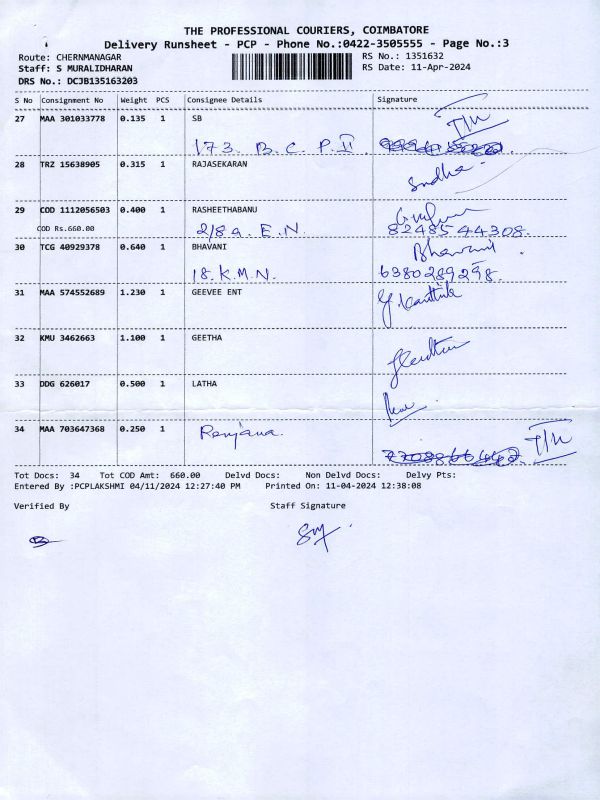 THE PROFESSIONAL COURIERS, COIMBATORE
Delivery Runsheet - PCP - Phone No.:0422-3505555 - Page No.:3
Route: CHERNMANAGAR RS No.: 1351632
Staff: S MURALIDHARAN RS Date: 11-Apr-2024
DRS No.: DCJB135163203
S No Consignment No Weight PCS Consignee Details Signature
27 MAA 301033778 0.135 1 SB T/N
173. B. C. P. II
28 TRZ 15638905 0.315 1 RAJASEKARAN
Sudha
29 COD 1112056503 0.400 1 RASHEETHABANU
COD Rs.660.00 2/8a. E.N. 8248544308.
30 TCG 40929378 0.640 1 BHAVANI Bhavani
18. K.M.N. 6380289298.
31 MAA 574552689 1.230 1 GEEVEE ENT
32 KMU 3462663 1.100 1 GEETHA
33 DDG 626017 0.500 1 LATHA
34 MAA 703647368 0.250 1 Renjana. T/N
Tot Docs: 34 Tot COD Amt: 660.00 Delvd Docs: Non Delvd Docs: Delvy Pts:
Entered By :PCPLAKSHMI 04/11/2024 12:27:40 PM Printed On: 11-04-2024 12:38:08
Verified By Staff Signature